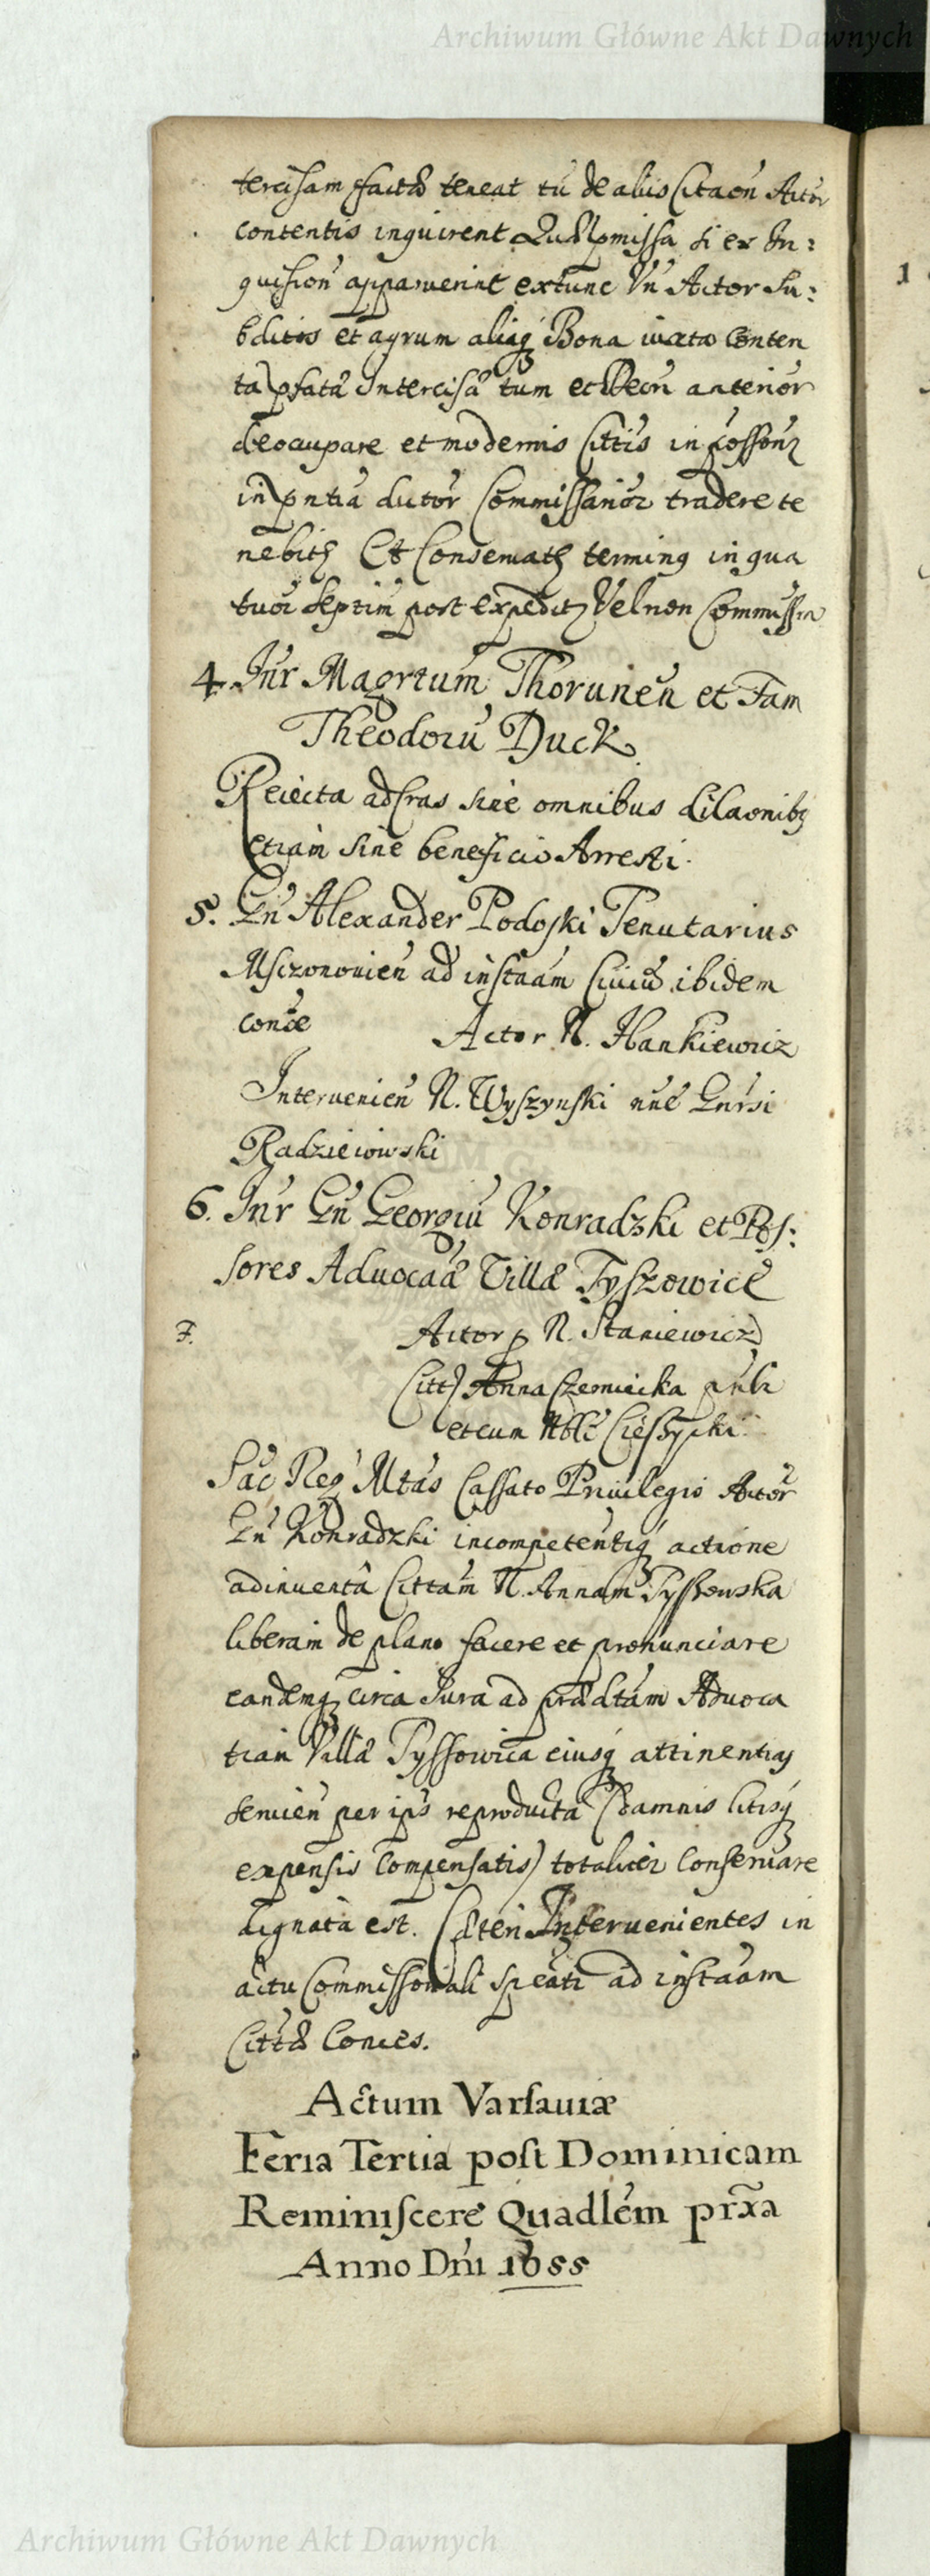 Archiwum Główne Akt Dawnych
tercisam factã teneat tũ de alus Citaõn Actor
contentis inquirent Qu p̃missa si ex In:
quision̄ apparuerint extunc Vn̄ Actor Su:
bditos et agrum aliaq́ Bona iuxta Conten
ta p̄fatã Intercisã tum et Decr̄ anterior
deocupare et modernis Cittis in possōnz
in p̄ntia dictor̄ Commissarior tradere te
nebitz Et Conseruatz terminq in qua
tuor Septim̄ post expedit Vel non Commissia
4. Int̄r Magr̄tum Thorunen̄ et Fam
Theodorū Duck
Reiecta ad Cras sine omnibus dilaõnibq
etiam sine beneficio Arresti.
5. Gn̄ Alexander Podoski Tenutarius
Msczonouien̄ ad inst̄aam Ciuiũ ibidem
conūe
Actor N. Hankiewicz
Interuenien̄ N. Wyszynski n̄n̄e Gn̄rsi
Radzieiowski
6. Int̄r Gn̄ Georgiū Konradzki et Pos:
sores Aduocãæ Villæ Tyszowice
F.
Actor p N. Staniewicz
Citt Anna Czerniecka
et cum Nbl̄i Ciesz̄ycki
Sac̄ Reg̃ Mtas Cassato Priuilegio Actor̄
Gn̄ Konradzki incompetentiq́ actione
adinuenta Cittam N. Annam Tyszowska
liberam de plano facere et pronunciare
eandemq circa Iura ad prædtam Aduoca
tiam Villæ Tyssowica eiusq́ attinentias
seruien̄ per ips̄ reproducta (damnis litisq́
expensis Compensatis) totaliter Conseruare
dignata est. Cæteri Interuenientes in
actu Commissoriali ad inst̄aam
Cittã Conūes.
Actum Varsauiæ
Feria Tertia post Dominicam
Reminiscere Quadlem prx̃a
Anno Dn̄i 1655
1
Archiwum Główne Akt Dawnych